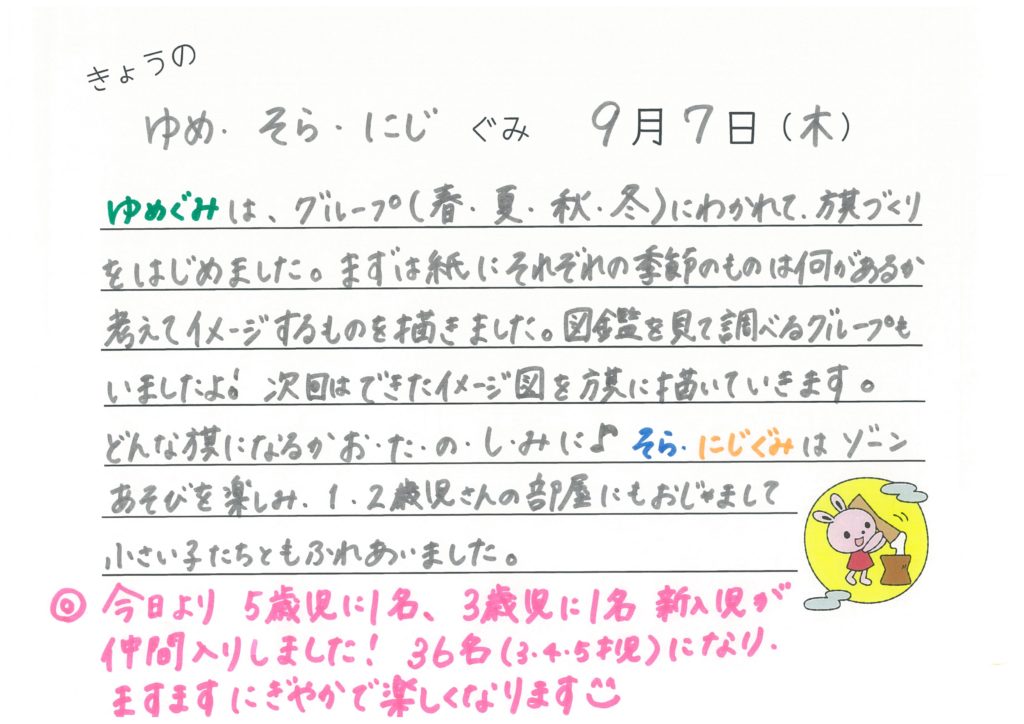 きょうの
ゆめ・そら・にじ ぐみ 9月7日(木)
ゆめぐみは、グループ(春・夏・秋・冬)にわかれて、旗づくり
をはじめました。まずは紙にそれぞれの季節のものは何があるか
考えてイメージするものを描きました。図鑑を見て調べるグループも
いましたよ! 次回はできたイメージ図を旗に描いていきます。
どんな旗になるかお・た・の・し・みに♪ そら・にじぐみはゾーン
あそびを楽しみ、1・2歳児さんの部屋にもおじゃまして
小さい子たちともふれあいました。
◎ 今日より 5歳児に1名、3歳児に1名 新入児が
仲間入りしました! 36名(3・4・5才児)になり、
ますますにぎやかで楽しくなります